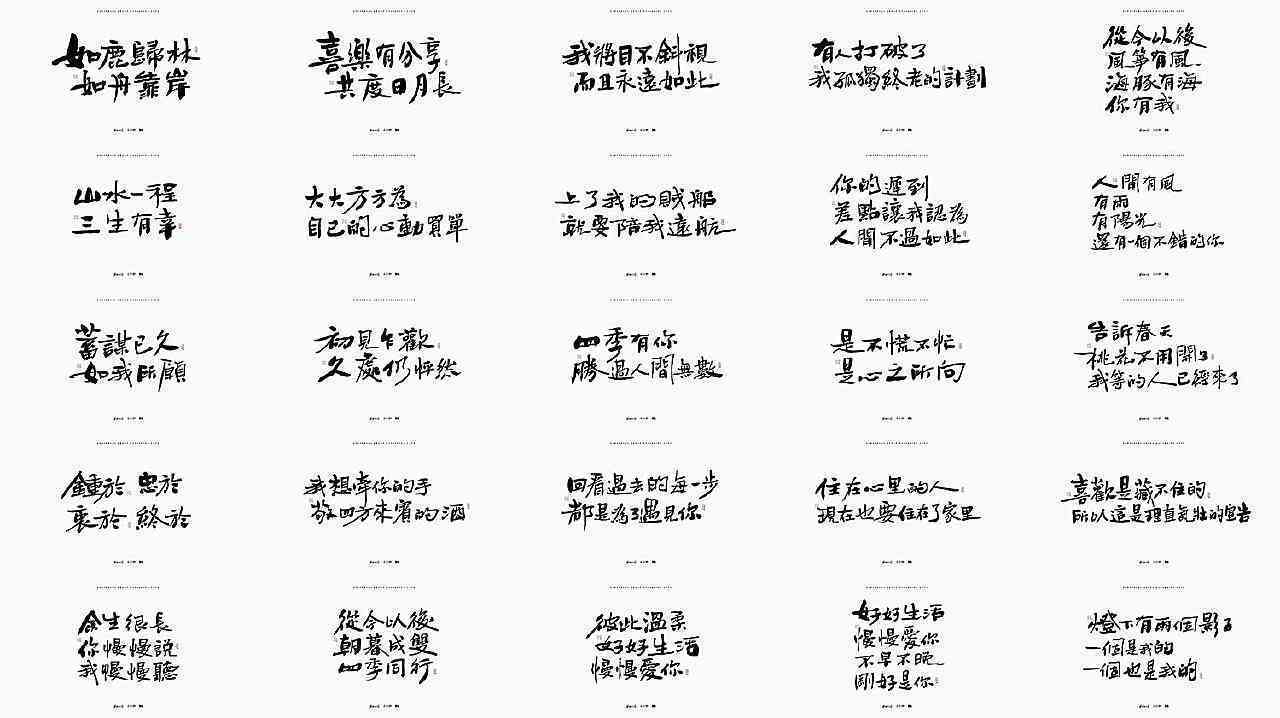 如鹿歸林
如舟靠岸
喜樂有分享
共度日月長
我將目不斜視
而且永遠如此
有人打破了
我孤獨終老的計劃
從今以後
風箏有風
海豚有海
你有我
山水一程
三生有幸
大大方方為
自己的心動買單
上了我的賊船
就要陪我遠航
你的遲到
差點讓我認為
人間不過如此
人間有風
有雨
有陽光
還有一個不錯的你
蓄謀已久
如我所願
初見乍歡
久處仍怦然
四季有你
勝過人間無數
是不慌不忙
是心之所向
告訴春天
桃花不用開了
我等的人已經來了
鍾於 忠於
衷於 終於
我想牽你的手
敬四方來賓的酒
回看過去的每一步
都是為了遇見你
住在心里的人
現在也要住在了家里
喜歡是藏不住的
所以這是理直氣壯的宣告
余生很長
你慢慢說
我慢慢聽
從今以後
朝暮成雙
四季同行
彼此溫柔
好好生活
慢慢愛你
好好生活
慢慢愛你
不早不晚
剛好是你
燈下有兩個影子
一個是我的
一個也是我的